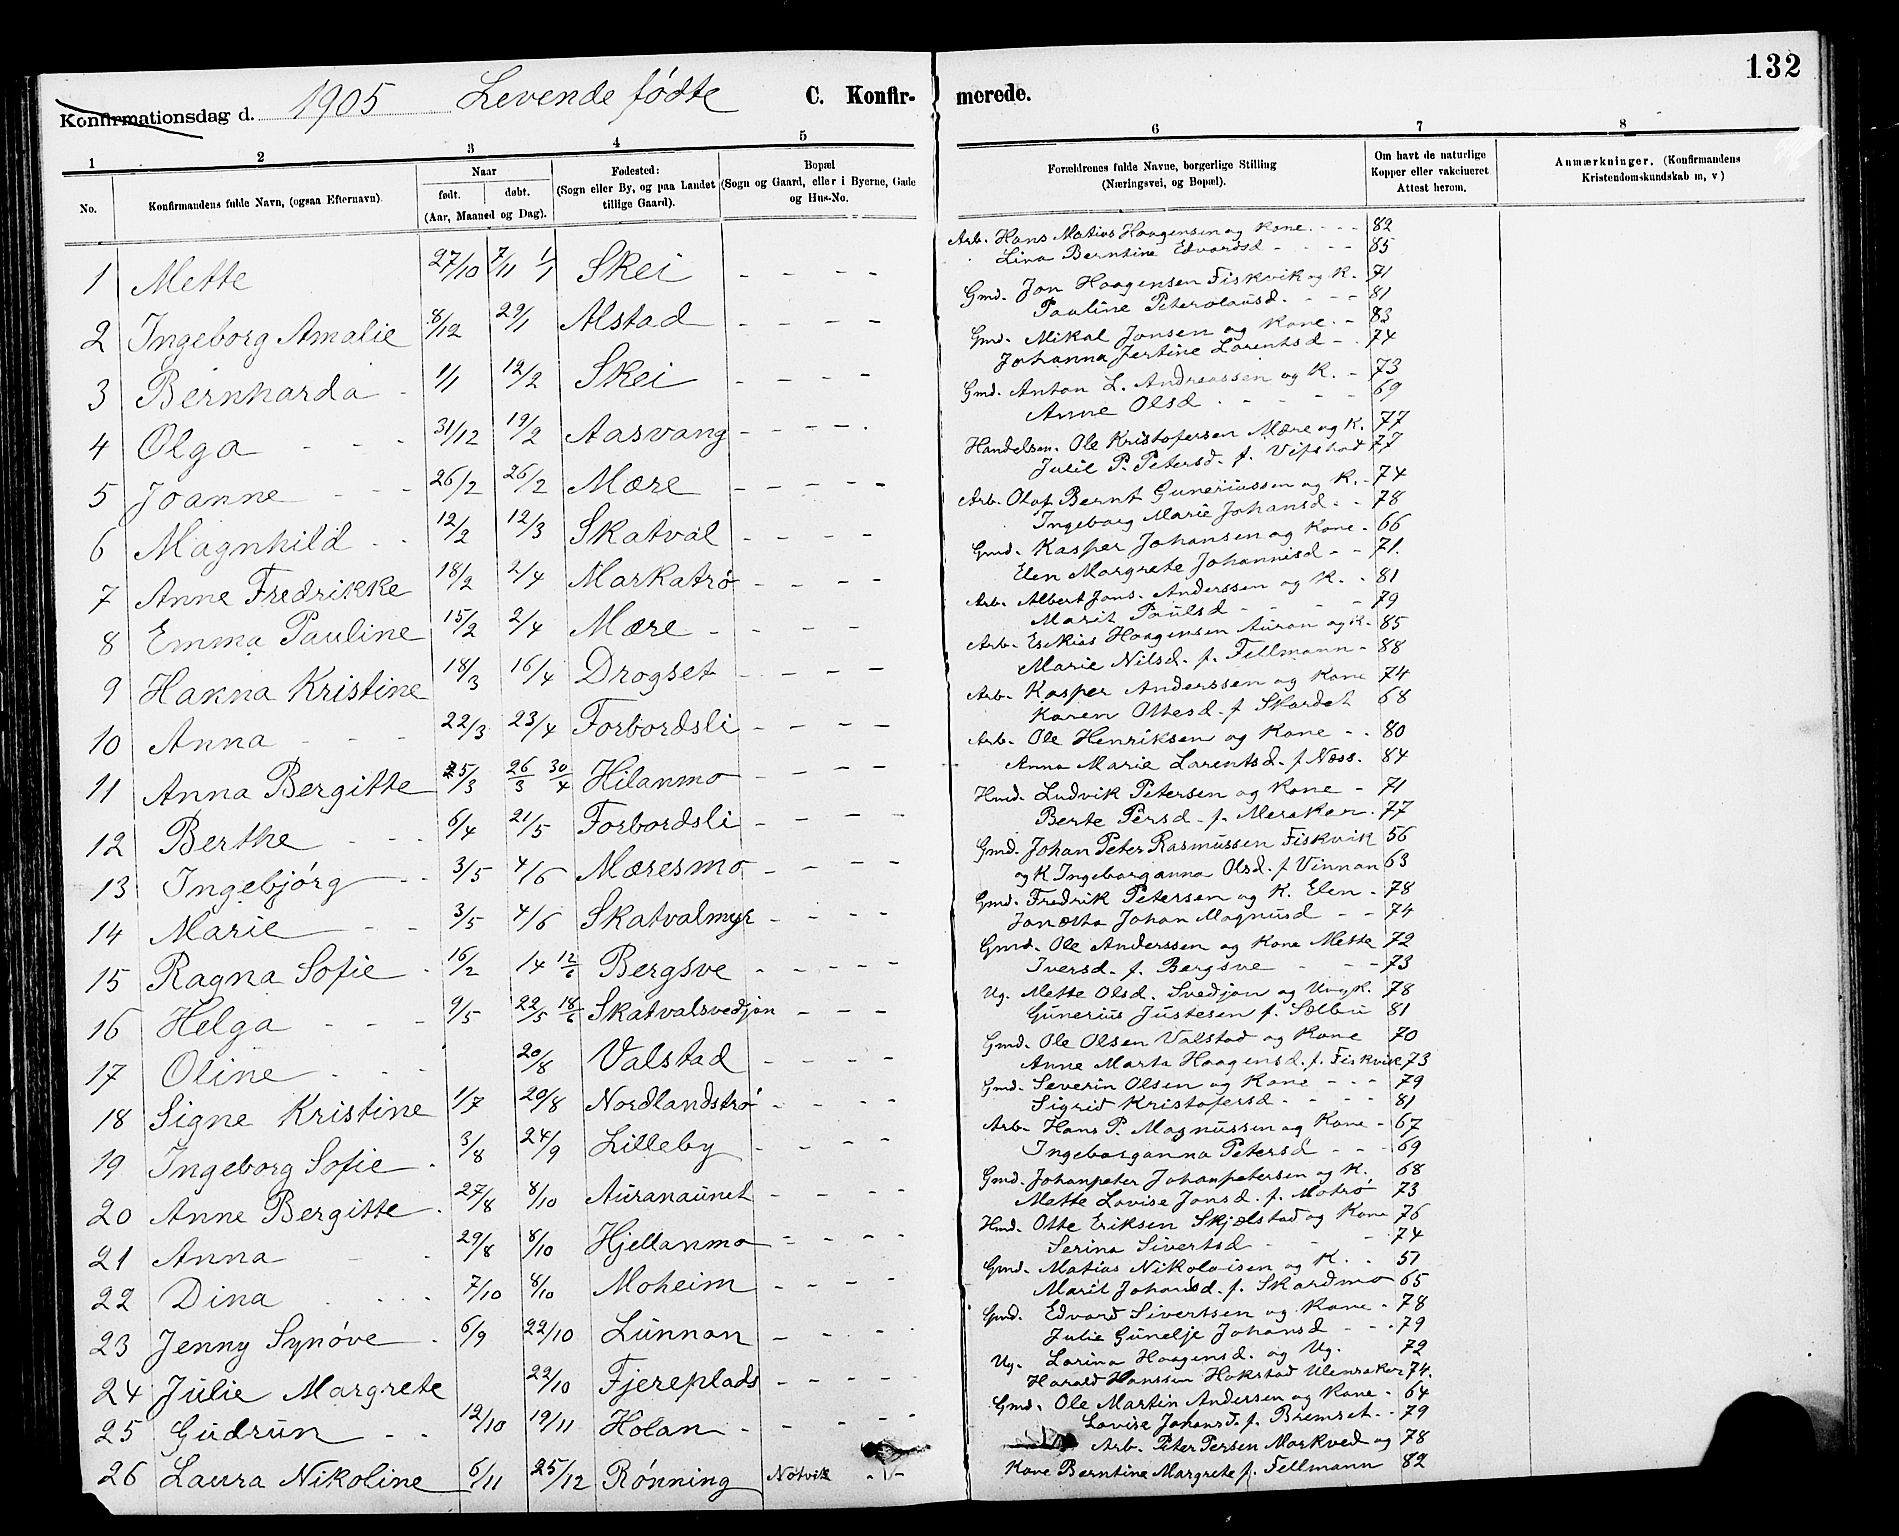 132
Konfirmationsdag d. 1905 Levende fødte C. Konfir- merede.
1 2 3 4 5 6 7 8
No. Konfirmandens fulde Navn, (ogsaa Efternavn). Naar født. døbt. (Aar, Maaned og Dag). Fødested: (Sogn eller By, og paa Landet tillige Gaard). Bopæl (Sogn og Gaard, eller i Byerne, Gade og Hus-No. Forældrenes fulde Navne, borgerlige Stilling (Næringsvei, og Bopæl). Om havt de naturlige Kopper eller vakcineret Attest herom. Anmærkninger. (Konfirmandens Kristendomskundskab m, v)
1 Mette 27/10 7/11 1/1 Skei - - - -
2 Ingeborg Amalie 8/12 29/1 Alstad - - - -
3 Bernharda - 1/1 12/2 Skei - - - -
4 Olga - - - 31/12 19/2 Aasvang - - - -
5 Joanne - - - 26/2 26/2 Mære - - - - -
6 Magnhild - - 12/2 12/3 Skatval - - - -
7 Anne Fredrikke 18/2 2/4 Markatrø - - - -
8 Emma Pauline 15/2 2/4 Mære - - - - -
9 Hanna Kristine 18/3 16/4 Drogset - - - -
10 Anna - - - 22/3 23/4 Forbordsli - - - -
11 Anna Bergitte 25/3 26/3 30/4 Hilanmo - - - -
12 Berthe - - 6/4 21/5 Forbordsli - - - -
13 Ingebjørg - - 3/5 4/6 Mæresmo - - - -
14 Marie - - 3/5 4/6 Skatvalmyr - - - -
15 Ragna Sofie - 16/2 14 12/6 Bergsve - - - - -
16 Helga - - - 9/5 22/5 18/6 Skatvalsvedjan - - -
17 Oline - - - 20/8 Valstad - - - -
18 Signe Kristine 1/7 20/8 Nordlandstrø - - - -
19 Ingeborg Sofie - 3/8 24/9 Lilleby - - - -
20 Anne Bergitte - 27/8 8/10 Auranaunet - - - -
21 Anna - - 29/8 8/10 Hjellanmo - - - -
22 Dina - - - 7/10 8/10 Moheim - - - -
23 Jenny Synøve - 6/9 22/10 Lunnan - - - -
24 Julie Margrete 22/10 Fjereplads - - - -
25 Gudrun - - 12/10 19/11 Holan - - - -
26 Laura Nikoline 6/11 25/12 Rønning - -
Arb. Hans Matias Haagensen og Kone - - - 82
Lina Berntine Edvardsd - - - - 85
Gmd. Jon Haagensen Fiskvik og K. 71
Pauline Peterolausd. - - - 81
Gmd. Mikal Jonsen og Kone. - 83
Johanna Jertine Lorentsd - - 74
Gmd. Anton L. Andreassen og K. - 73
Anne Olsd. - - - - 69
Handelsm. Ole Kristofersen Mære og K. 77
P. Petersd. f. Vifstad 77
Arb. Olaf Bernt Guneriussen og K. - 74
Ingeborg Marie Johansd. - - 78
Gmd. Kasper Johansen og Kone - 66
Elen Margrete Johannisd - - 71.
Arb. Albert Jons. Anderssen og K. - 81
Marit Paulsd - - - - 79
Arb. Esekias Haagensen Auran og K. 85
Marie Nilsd. f. Fellmann - 88
Arb. Kasper Anderssen og Kone 74
Karen Ottesd. f. Skardet 68
Arb. Ole Henriksen og Kone - - 80
Anna Marie Larentsd. f. Næss. 84
Hmd. Ludvik Petersen og Kone - 71
Berte Persd. f. Meraker. 77
Gmd. Johan Peter Rasmussen Fiskvik 56
og K Ingeborganna Olsd. f. Vinnan 63
Gmd. Fredrik Petersen og K. Elen - 78
Janetta Johan Magnusd - - 74
Gmd. Ole Anderssen og Kone Mette 72
Iversd. f. Bergsve - - - 73
Ug. Mette Olsd. Svedjan og Ungk. 78
Gunerius Justesen f. Selbu 81
Gmd. Ole Olsen Valstad og Kone 70
Anne Marta Haagensd. f. Fiskvik 73
Gmd. Severin Olsen og Kone - - - 79
Sigrid Kristofersd - - - - 81
Arb. Hans P. Magnussen og Kone - 67
Ingeborganna Petersd - - - 69
Gmd. Johanpeter Johanpetersen og K. 68
Mette Lovise Jonsd. f. Motrø 73
Hmd. Otte Eriksen Skjelstad og Kone 76
Serina Sivertsd - - - 74
Gmd. Matias Nikolaisen og K. - 57
Marit Johansd. f. Skardmo 65
Gmd. Edvard Sivertsen og Kone - 78
Julie Gunelje Johansd - - - 79
Ug. Larina Haagensd. og Ug. 72
Harald Hanssen Hokstad 74.
Gmd. Ole Martin Andersen og Kone - 64
Lovise Johansd. f. Bremset - - 79
Arb. Peter Persen Markved og 78
Kone Berntine Margrete f. Fellmann 82